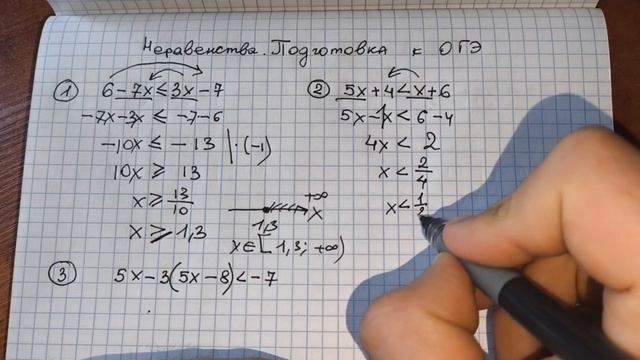 Неравенства. Подготовка к ОГЭ
1 6 - 7x ≤ 3x - 7
-7x - 3x ≤ -7 - 6
-10x ≤ -13 | · (-1)
10x ≥ 13
x ≥ 13/10
x ≥ 1,3
1,3 +∞ x
x ∈ [1,3; +∞)
2 5x + 4 < x + 6
5x - 1x < 6 - 4
4x < 2
x < 2/4
x < 1/2
3 5x - 3(5x - 8) < -7